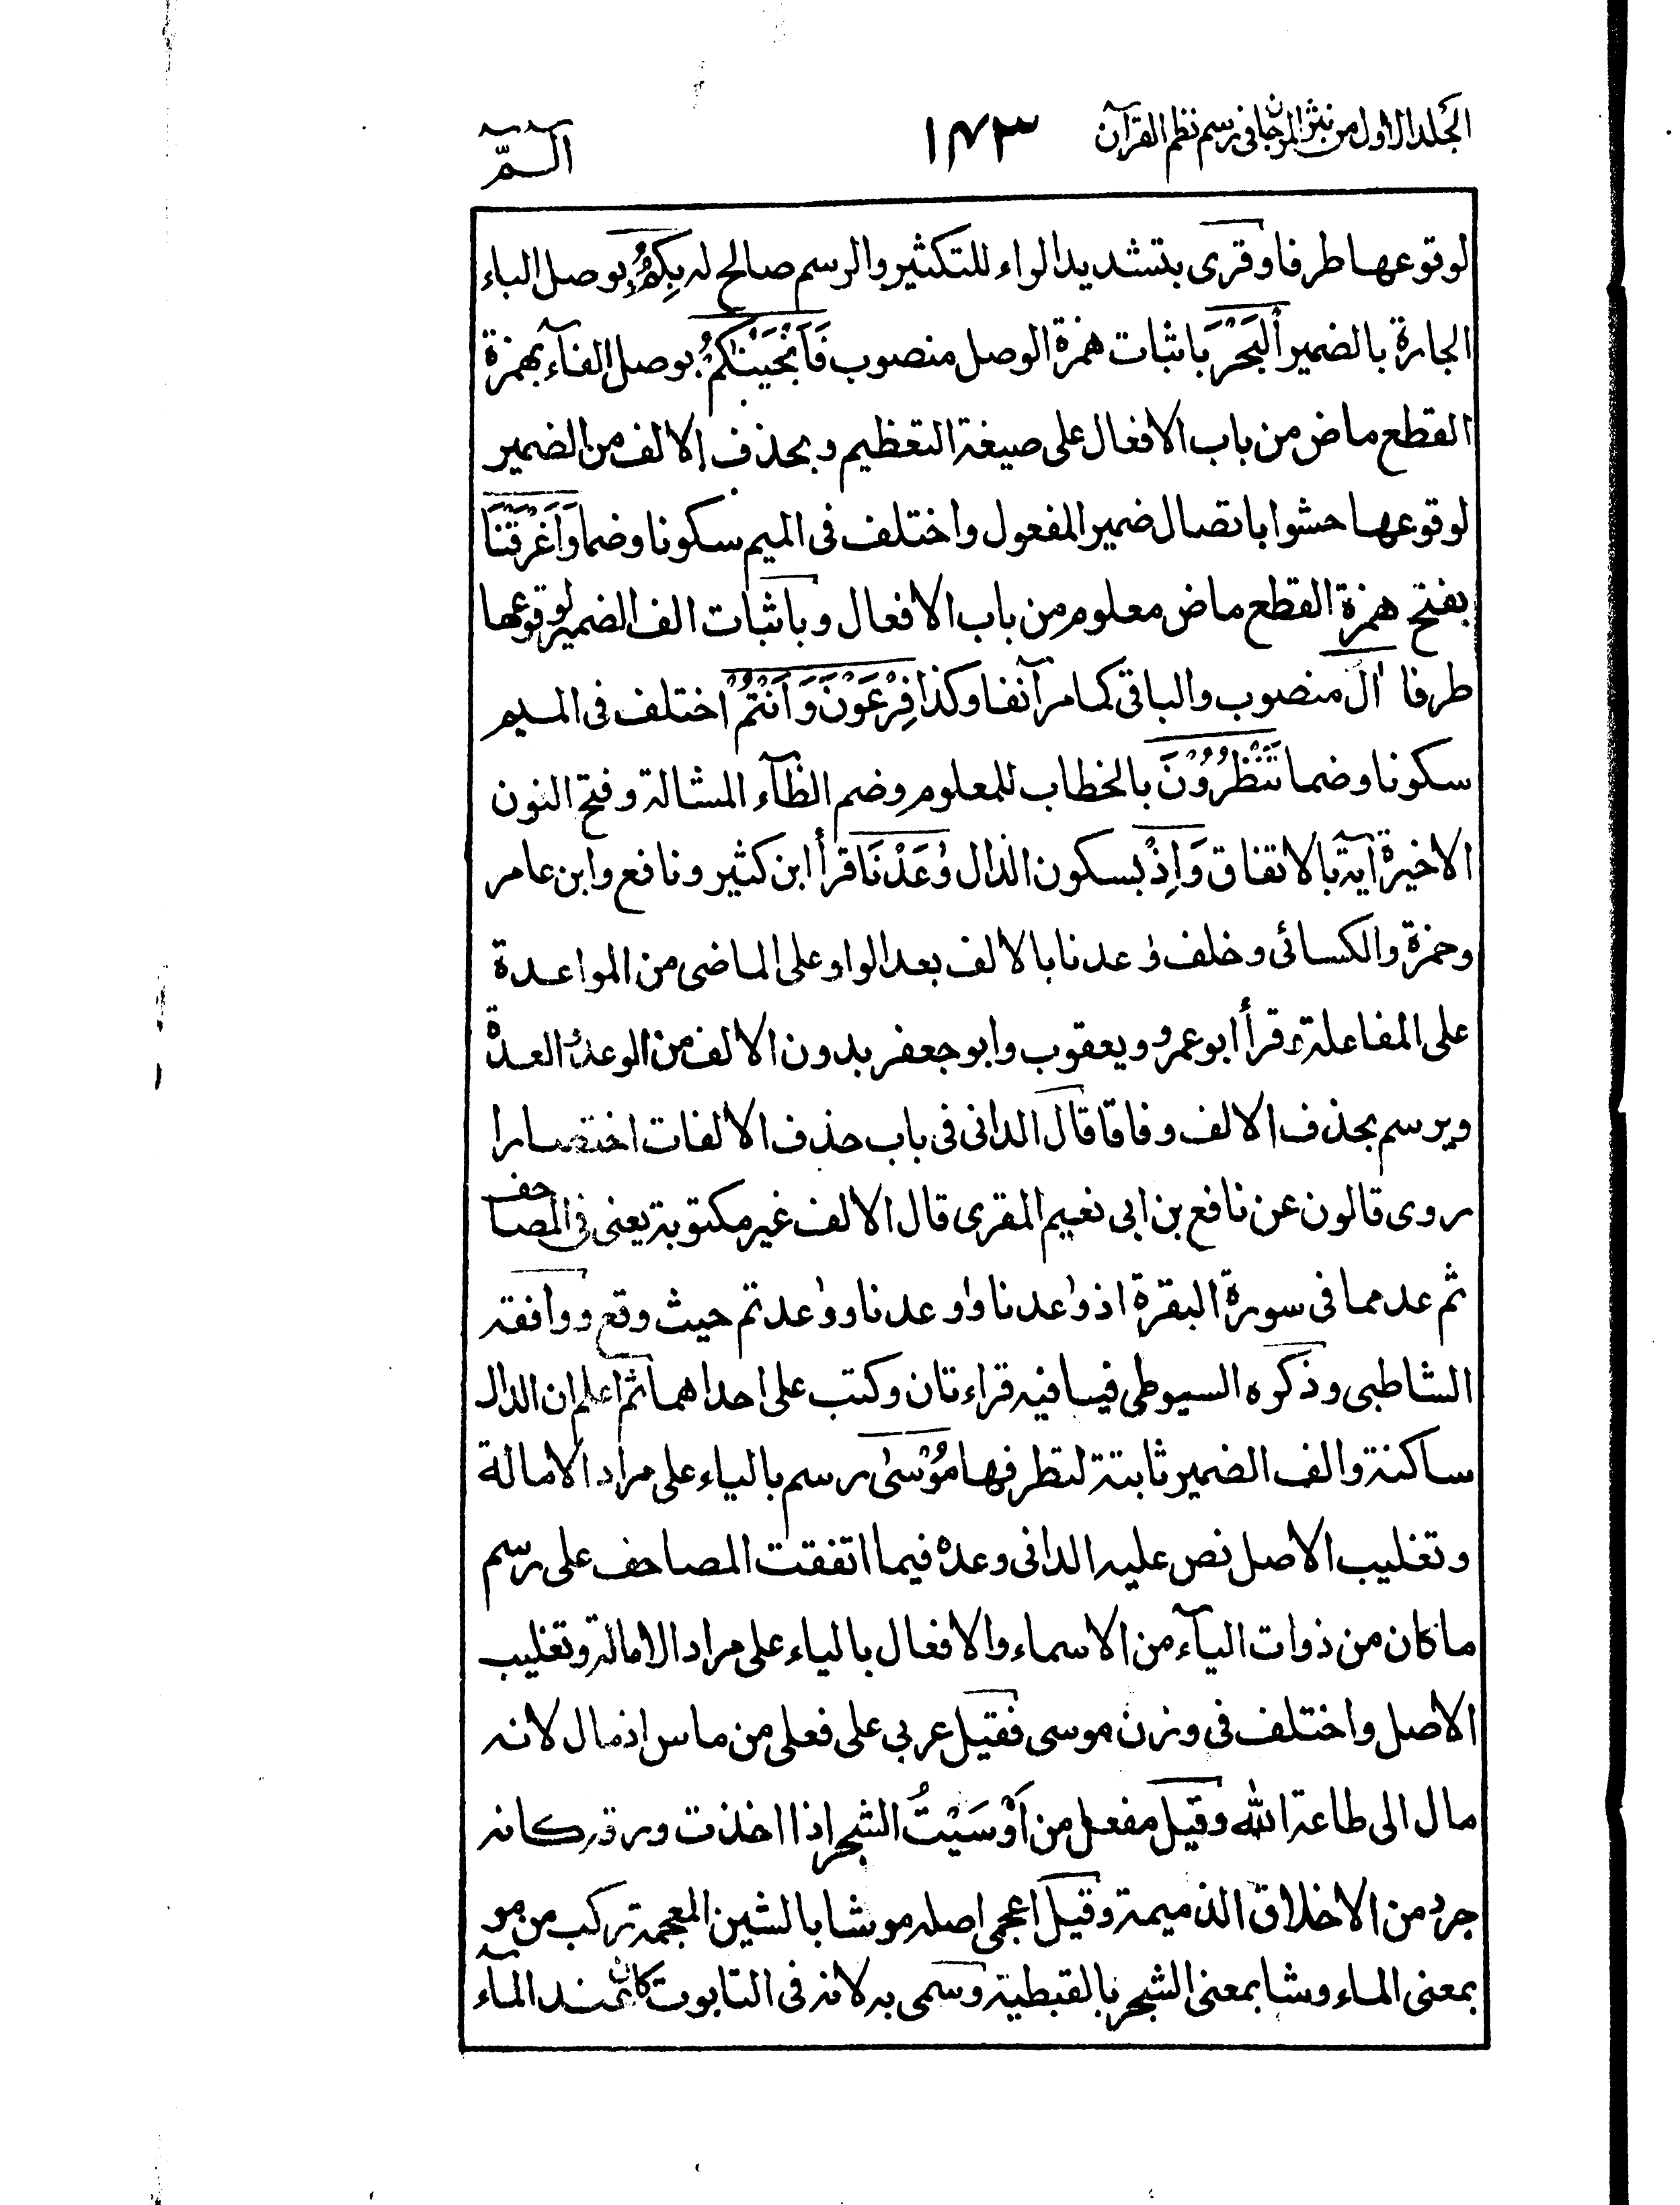 الجلد الاول من نثر المرجان فى رسم نظم القرآن ١٤٣ الٓـمّٓ
لوقوعها طرفا وقرى بتشديد الراء للتكثير والرسم صالح له بِكُمُ بوصل الباء
الجارة بالضمير اَلْبَحْرَ باثبات همزة الوصل منصوب فَاَنْجَيْنٰكُمْ بوصل الفآء بهمزة
القطع ماض من باب الافعال على صيغة التعظيم وبحذف الالف من الضمير
لوقوعها حشوا باتصال ضمير المفعول واختلف فى الميم سكونا وضما وَاَغْرَقْنَا
بفتح همزة القطع ماض معلوم من باب الافعال وباثبات الف الضمير لوقوعها
طرفا اٰلَ منصوب والباقى كما مر آنفا وكذا فِرْعَوْنَ وَاَنْتُمْ اختلف فى الميم
سكونا وضما تَنْظُرُوْنَ بالخطاب للمعلوم وضم الظآء المشالة وفتح النون
الاخيرة آية بالاتفاق وَاِذْ بسكون الذال وٰعَدْنَا قرأ ابن كثير ونافع وابن عامر
وحمزة والكسائى وخلف وٰعدنا بالالف بعد الواو على الماضى من المواعدة
على المفاعلة وقرأ ابو عمرو ويعقوب وابو جعفر بدون الالف من الوعد والعدة
ويرسم بحذف الالف وفاقا قال الدانى فى باب حذف الالفات اختصارا
روى قالون عن نافع بن ابى نعيم المقرى قال الالف غير مكتوبة يعنى فى المصاحف
ثم عد مما فى سورة البقرة اذ وٰعدنا ووٰعدنا ووٰعدتم حيث وقع ووافقه
الشاطبى وذكره السيوطى فيما فيه قراءتان وكتب على احداهما ثم اعلم ان الدال
ساكنة والف الضمير ثابتة لتطرفها مُوْسٰى رسم بالياء على مراد الامالة
وتغليب الاصل نص عليه الدانى وعده فيما اتفقت المصاحف على رسم
ما كان من ذوات اليآء من الاسماء والافعال بالياء على مراد الامالة وتغليب
الاصل واختلف فى وزن موسى فقيل عربي على فعلى من ماس اذ مال لانه
مال الى طاعة الله وقيل مفعل من اَوْسَيْتُ الشجر اذا اخذت ورقه كانه
جرد من الاخلاق الذميمة وقيل اعجمى اصله موشا بالشين المعجمة تركب من مو
بمعنى الماء وشا بمعنى الشجر بالقبطية وسمى به لانه فى التابوت كان عند المآء